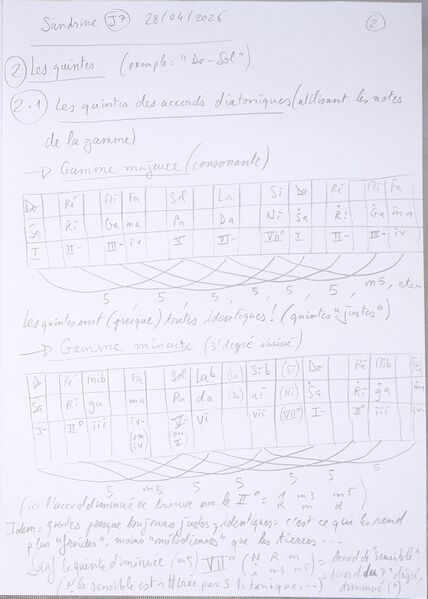 Sandrine J7 28/04/2026 2
2 Les quintes (exemple: "Do-Sol")
2.1 Les quintes des accords diatoniques (utilisant les notes
de la gamme)
→ Gamme majeure (consonante)
Do Ré Mi Fa Sol La Si Do Ré Mi Fa
Sa Ri Ga ma Pa Da Ni Ṡa Ṙi Ġa ṁa
I II- III- iv V VI- VII° I II- III- iv
5 5 5 5, 5, 5, m5, etc...
Les quintes sont (presque) toutes identiques! (quintes "justes")
→ Gamme mineure (3e degré abaissé)
Do Ré mib Fa Sol Lab (La) Sib (Si) Do Ré mib Fa
Sa Ri ga ma Pa da (Da) ni (Ni) Ṡa Ṙi ġa ṁa
I- II° iii iv- (ou iv) V- (ou V) vi vii (VII°) I- II° iii iv-
5 m5 5 5 5 5 5 5
(ici l'accord diminué se trouve sur le II° = 1 m3 m5
R m d)
Idem: quintes presque toujours justes, identiques = c'est ce qui les rend
plus "froides", moins "mélodieuses" que les tierces...
Sauf la quinte diminuée (m5) VII° (N R m = Accord de "sensible"
1 m3 m5) = accord du 7e degré,
(N la sensible est attirée par S la tonique...) diminué (°)